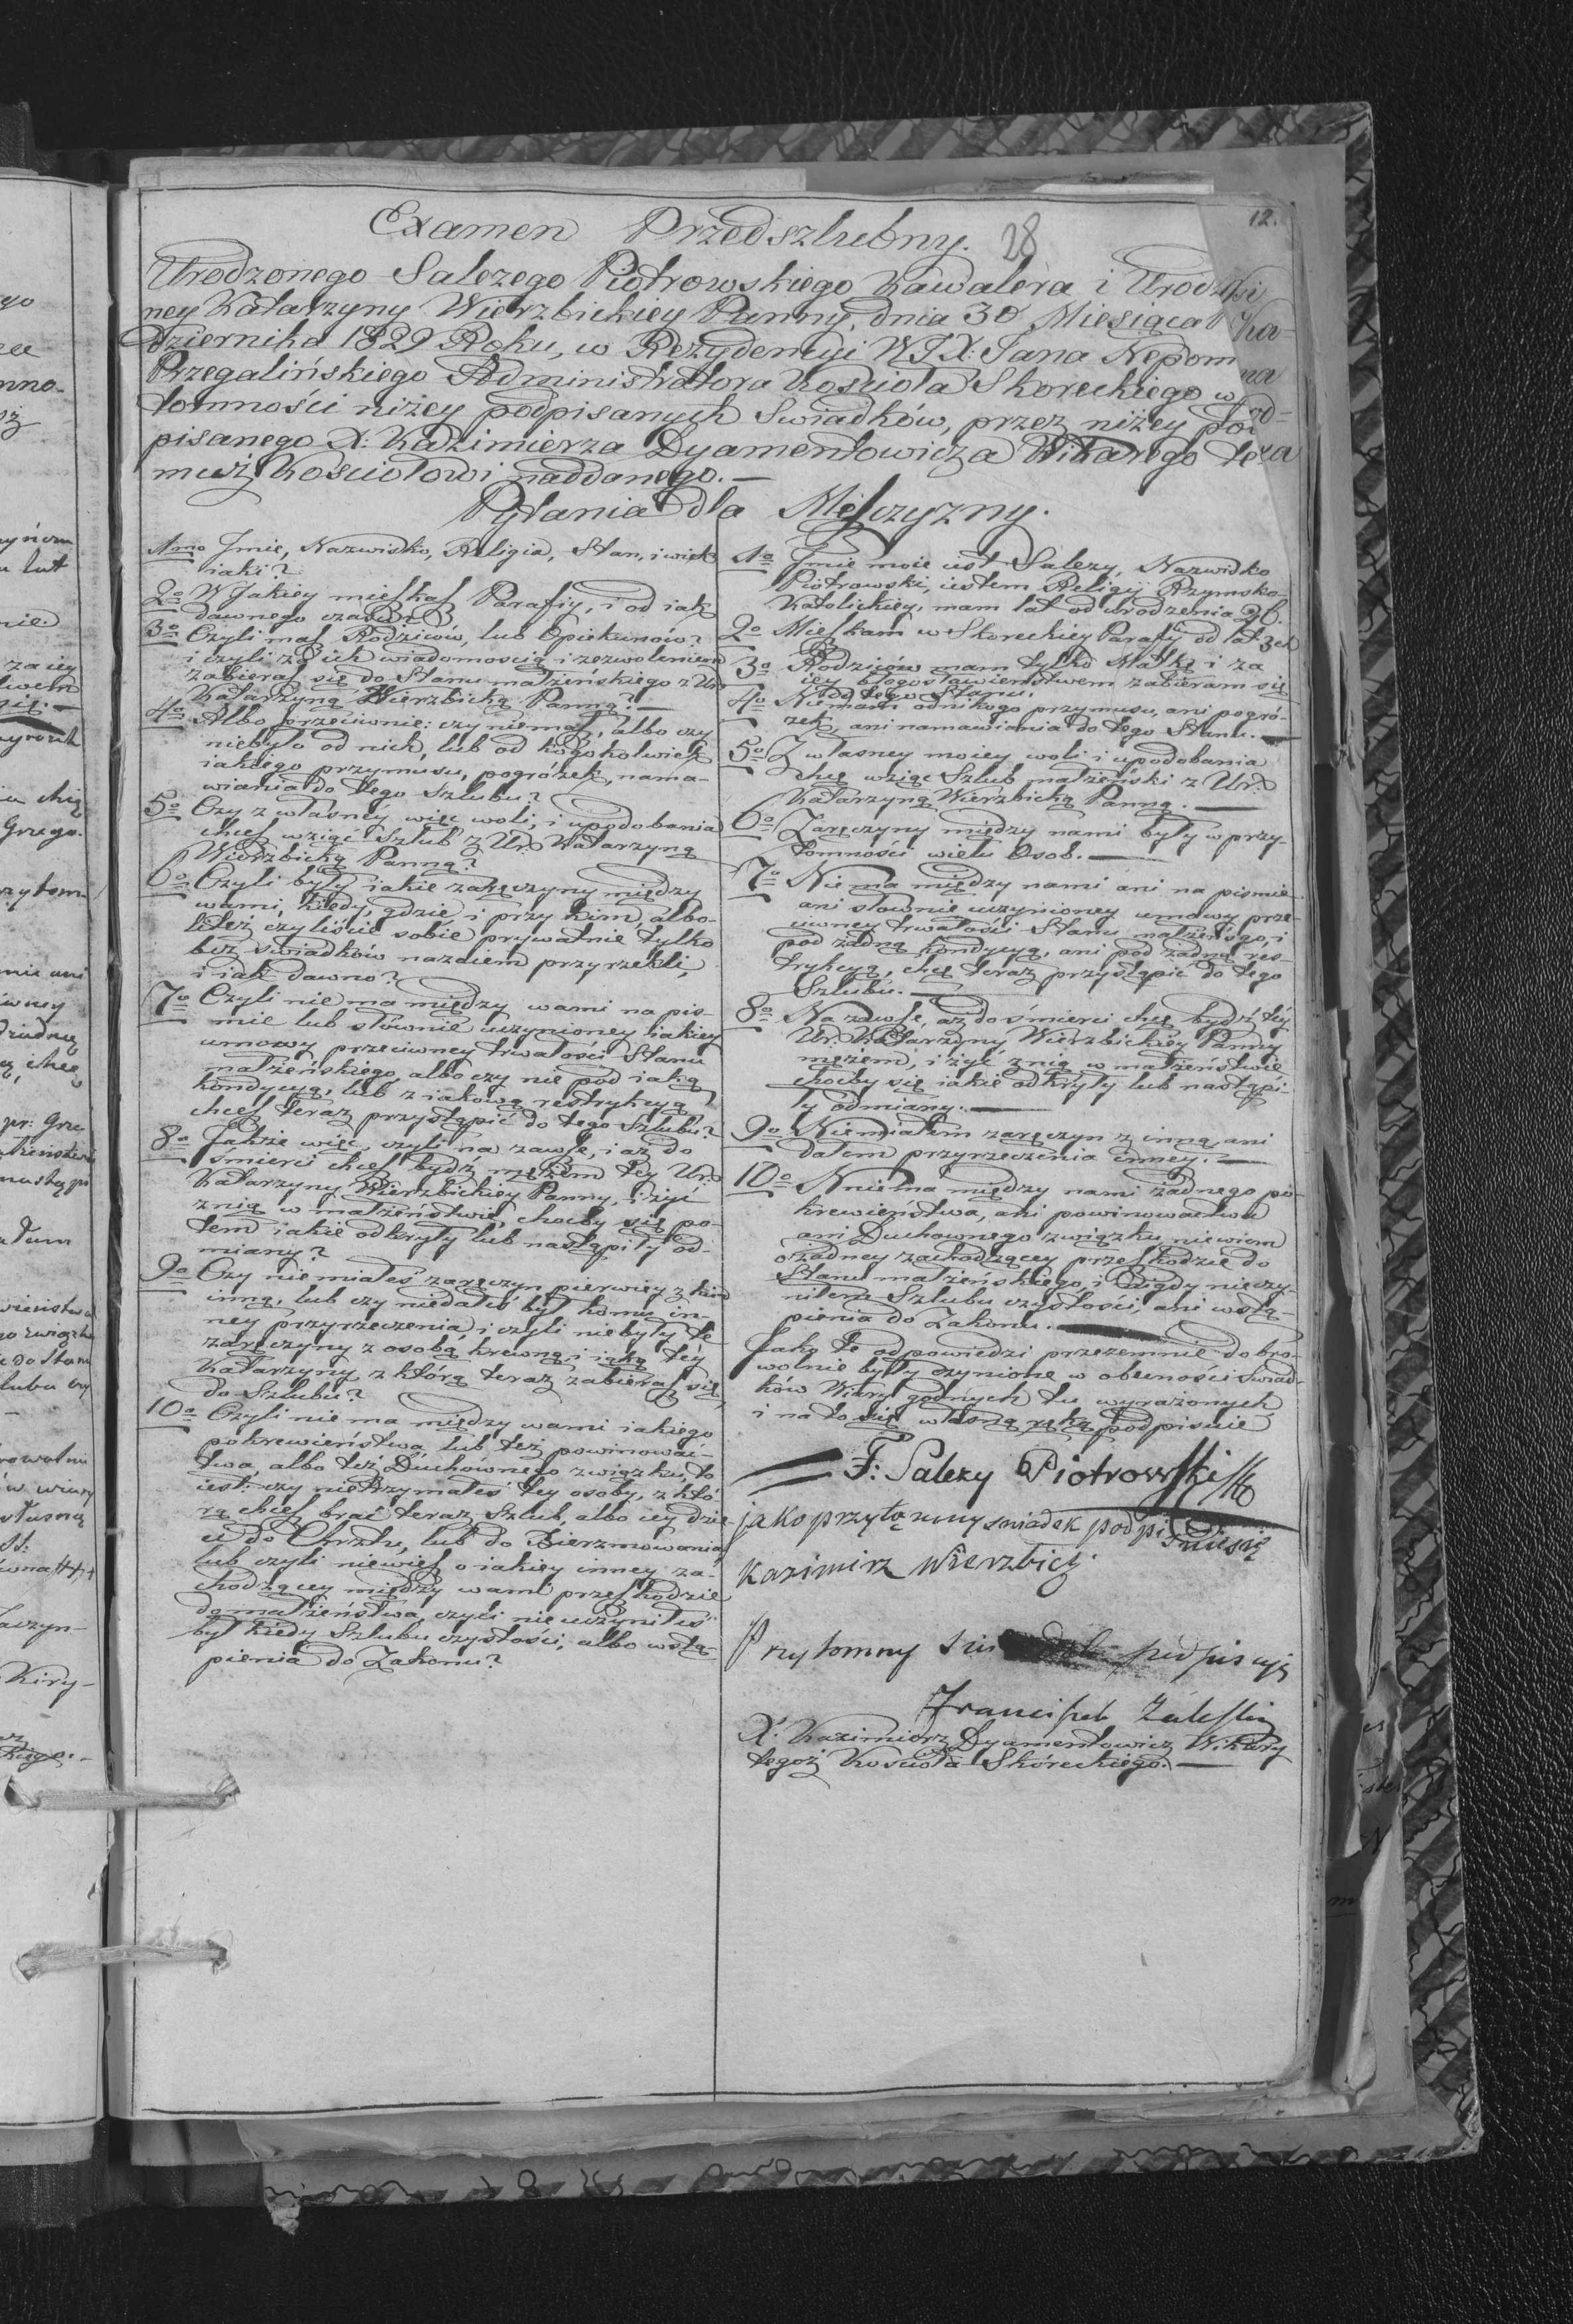 12.
Examen Przedszlubny. 28
Urodzonego Salezego Piotrowskiego Kawalera i Urodzo
ney Katarzyny Wierzbickiey Panny, dnia 30 Miesiąca
dziernika 1829 Roku, w Rezydencyi WJX: Jana Nepom
Przegalińskiego Administratora Kościoła Skoreckiego w
tomności niżey podpisanych Swiadków, przez niżey pod-
pisanego X: Kazimierza Dyamentowicza Wikarego te
muż Kościołowi naddanego.—
Pytania dla Męszczyzny.
1mo Jmie, Nazwisko, Religia, Stan, i wiek
iaki?
2o W Jakiey mieszkasz Parafiy, i od iak
dawnego czasu?
3o Czyli masz Rodziców, lub Opiekunów?
i czyli za ich wiadomością i zezwoleniem
zabierasz się do Stanu małżeńskiego z Ur:
Katarzyną Wierzbicką Panną?—
4o Albo przeciwnie: czy niemasz, albo czy
niebyło od nich, lub od kogokolwiek
iakiego przymusu, pogróżek, nama-
wiania do tego Szlubu?
5o Czy z własnéy więc woli, i upodobania
chcesz wziąć Szlub z Ur: Katarzyną
Wierzbicką Panną?
6o Czyli były iakie zaręczyny między
wami, kiedy, gdzie i przy kim, albo-
liteż czyliście sobie prywatnie tylko
bez swiadków nazaiem przyrzekli,
i iak dawno?
7o Czyli nie ma między wami na pis-
mie lub słownie uczynioney iakiey
umowy przeciwney trwałości Stanu
małżeńskiego, albo czy nie pod iaką
kondycyą, lub z iakową restrykcyą
chcesz teraz przystąpić do tego Szlubu?
8o Jakże więc, czyli na zawsze, i aż do
śmierci chcesz bydź mężem tey Ur:
Katarzyny Wierzbickiey Panny, i żyć
znią w małżeństwie, choćby się po-
tem iakie odkryły lub nastąpiły od-
miany?
9o Czy nie miałeś zaręczyn pierwiey z kim
inną, lub czy niedałeś był komu in-
ney przyrzeczenia, i czyli niebyły te
zaręczyny z osobą krewną iaką téy
Katarzyny z którą teraz zabierasz się
do Szlubu?
10o Czyli nie ma między wami iakiego
pokrewieństwa, lub też powinowac-
twa, albo też Duchównego związku, to
iest: czy nietrzymałeś tey osoby, z któ-
rą chcesz brać teraz Szlub, albo iey dzie-
ci do Chrztu, lub do Bierzmowania,
lub czyli niewiesz o iakiey inney za-
chodzącey między wami przeszkodzie
do małżeństwa, czyli nie uczyniłeś
był kiedy Szlubu czystości, albo wstą-
pienia do Zakonu?
1o Jmie moie iest Salezy, Nazwisko
Piotrowski, iestem Religiy Rzymsko-
Katolickiey, mam lat od urodzenia 26.
2o Mieszkam w Skoreckiey Parafiy od lat 3ch
3o Rodziców mam tylko Matkę i za
iey błogosławieństwem zabieram się
do tego Stanu.
4o Niemam od nikogo przymusu, ani pogró-
żek, ani namawiania do tego Stanu.—
5o Z własney moiey woli i upodobania
chcę wziąć Szlub małżeński z Ur:
Katarzyną Wierzbicką Panną.—
6o Zaręczyny między nami były w przy-
tomności wielu Osob.—
7o Nie ma między nami ani na pismie
ani słownie uczynioney umowy prze-
ciwney trwałości Stanu małżeńsgo, i
pod żadną kondycyą, ani pod żadną res-
trykcyą, chcę teraz przystąpić do tego
Szlubu.—
8o Na zawsze, aż do śmierci chcę bydź téy
Ur: Katarzyny Wierzbickiey Panny
mężem, i żyć znią w małżeństwie
choćby się iakie odkryły lub nastąpi-
ły odmiany.—
9o Niemiałem zaręczyn z inną, ani
dałem przyrzeczenia inney.—
10o Nie ma między nami żadnego po-
krewieństwa, ani powinowactwa
ani Duchownego związku, niewiem
o żadney zachodzącey przeszkodzie do
Stanu małżeńskiego, i nigdy nieczy-
niłem Szlubu czystości, ani wstą-
pienia do Zakonu.—
Jako te odpowiedzi przezemnie dobro-
wolnie były czynione w obecności Swiad-
ków Wiary godnych tu wyrażonych
i na to się własną ręką podpisuie
F: Salezy Piotrowski
jako przytomny swiadek podpisuie się
Kazimirz Wierzbicz.
Przytomny podpisuję
Franciszek Zaleski
X: Kazimierz Dyamentowicz Wikary
tegoż Kościoła Skóreckiego.—